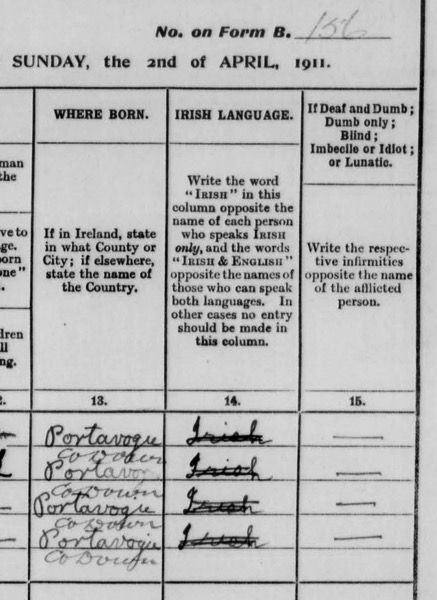 No. on Form B. 156
SUNDAY, the 2nd of APRIL, 1911.
WHERE BORN.
If in Ireland, state
in what County or
City; if elsewhere,
state the name of
the Country.
13.
Portavogie
Co Down
Portavogie
Co Down
Portavogie
Co Down
Portavogie
Co Down
IRISH LANGUAGE.
Write the word
"IRISH" in this
column opposite the
name of each person
who speaks IRISH
only, and the words
"IRISH & ENGLISH"
opposite the names of
those who can speak
both languages. In
other cases no entry
should be made in
this column.
14.
Irish
Irish
Irish
Irish
If Deaf and Dumb;
Dumb only;
Blind;
Imbecile or Idiot;
or Lunatic.
Write the respec-
tive infirmities
opposite the name
of the afflicted
person.
15.